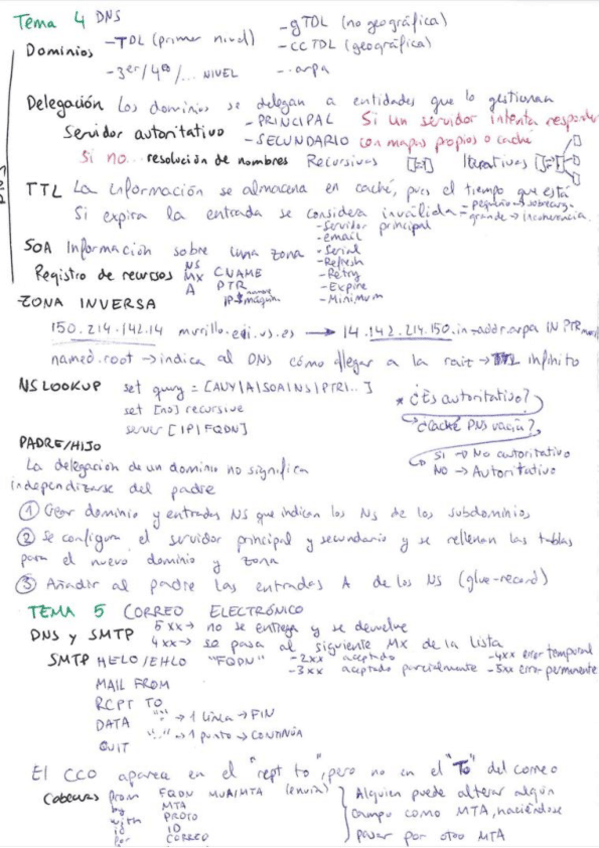 Tema 4 DNS
Dominios
-TDL (primer nivel)
-gTDL (no geográfica)
-ccTDL (geográfica)
-3er/4º/... NIVEL
-.arpa
Delegación Los dominios se delegan a entidades que lo gestionan
Servidor autoritativo
-PRINCIPAL
-SECUNDARIO
Si un servidor intenta responder
con mapas propios o caché
Si no... resolución de nombres Recursivas Iterativas
DNS
TTL La información se almacena en caché, pues el tiempo que está
Si expira la entrada se considera inválida
-pequeño→sobrecarga
-grande→Incoherencia.
SOA Información sobre una zona
-Servidor principal
-email
-Serial
-Refresh
-Retry
-Expire
-Minimum
Registro de recursos
NS
MX CNAME
A PTR
ZONA INVERSA
150.214.142.14 murillo.eii.us.es → 14.142.214.150.in-addr.arpa IN PTR
named.root → indica al DNS cómo llegar a la raíz → TTL infinito
NSLOOKUP set query = [ANY|A|SOA|NS|PTR|..]
set [no] recursive
server [IP|FQDN]
* ¿Es autoritativo?
¿Caché DNS vacía?
SI → No autoritativo
NO → Autoritativo
PADRE/HIJO
La delegación de un dominio no significa
independizarse del padre
① Crear dominio y entradas NS que indican los NS de los subdominios
② Se configura el servidor principal y secundario y se rellenan las tablas
para el nuevo dominio y zona
③ Añadir al padre las entradas A de los NS (glue-record)
TEMA 5 CORREO ELECTRÓNICO
DNS y SMTP
5xx→ no se entrega y se devuelve
4xx→ se pasa al siguiente MX de la lista
SMTP HELO/EHLO "FQDN"
-2xx aceptado
-3xx aceptado parcialmente
-4xx error temporal
-5xx error permanente
MAIL FROM
RCPT TO
DATA "." → 1 línea → FIN
".." → 1 punto → CONTINÚA
QUIT
El CCO aparece en el "rcpt to", pero no en el "To" del correo
Cabeceras
from FQDN MUA/MTA (envía)
by MTA
with PROTO
id ID
for CORREO
Alguien puede alterar algún
campo como MTA, haciéndose
pasar por otro MTA